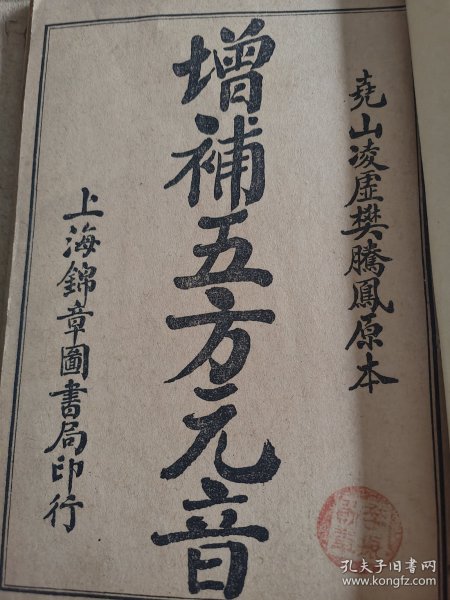 堯山凌虛樊騰鳳原本
增補五方元音
上海錦章圖書局印行
孔夫子旧书网
www.kongfz.com